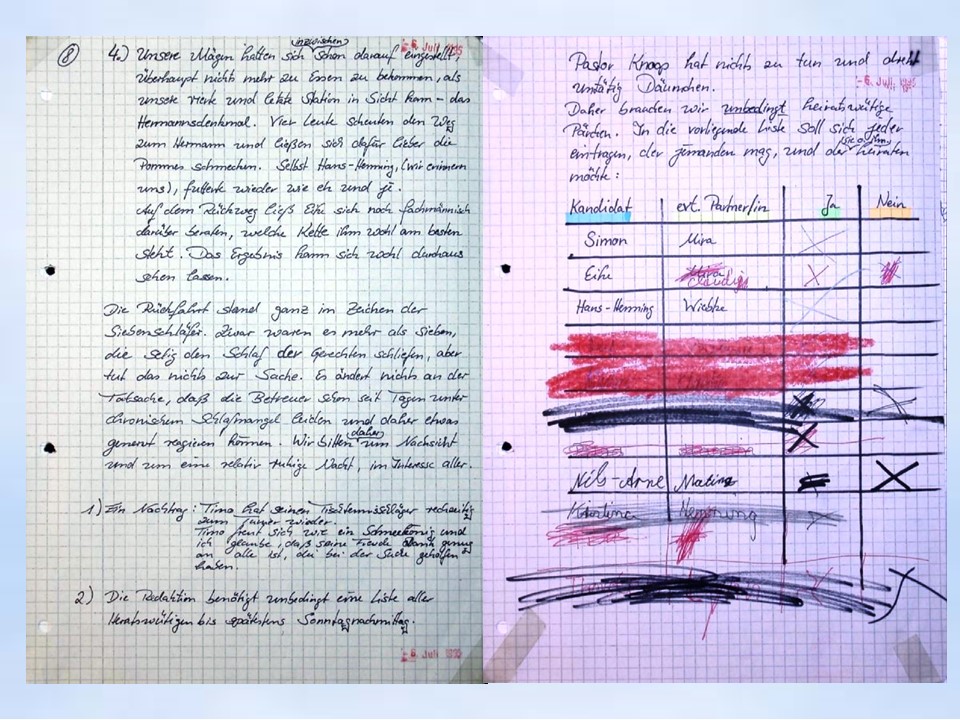 8
- 6. Juli 1995
4.) Unsere Mägen hatten sich inzwischen schon darauf eingestellt,
überhaupt nichts mehr zu Essen zu bekommen, als
unsere vierte und letzte Station in Sicht kam - das
Hermannsdenkmal. Vier Leute schenkten den Weg
zum Hermann und ließen sich dafür lieber die
Pommes schmecken. Selbst Hans-Henning, (wir erinnern
uns), futterte wieder wie eh und je.
Auf dem Rückweg ließ Eike sich noch fachmännisch
darüber beraten, welche Kette ihm wohl am besten
steht. Das Ergebnis kann sich wohl durchaus
sehen lassen.
Die Rückfahrt stand ganz im Zeichen der
Siebenschläfer. Zwar waren es mehr als Sieben,
die selig den Schlaf der Gerechten schliefen, aber
tut das nichts zur Sache. Es ändert nichts an der
Tatsache, daß die Betreuer schon seit Tagen unter
chronischem Schlafmangel leiden und daher etwas
genervt reagieren können. Wir bitten daher um Nachsicht
und um eine relativ ruhige Nacht, im Interesse aller.
1) Ein Nachtrag: Timo hat seinen Tischtennisschläger rechtzeitig
zum Turnier wieder.
Timo freut sich wie ein Schneekönig und
ich glaube, daß seine Freude Dank genug
an alle ist, die bei der Suche geholfen
haben.
2) Die Redaktion benötigt unbedingt eine Liste aller
Heiratswütigen bis spätestens Sonntagnachmittag.
- 6. Juli 1995
Pastor Knoop hat nichts zu tun und dreht
untätig Däumchen.
- 6. Juli 1995
Daher brauchen wir unbedingt heiratswütige
Pärchen. In die vorliegende Liste soll sich jeder
eintragen, der jemanden mag, und der sie o. ihn heiraten
möchte:
Kandidat evt. Partner/in Ja Nein
Simon Mira
Eike Claudia X
Hans-Henning Wiebke
Nils-Arne X
Kristina Henning